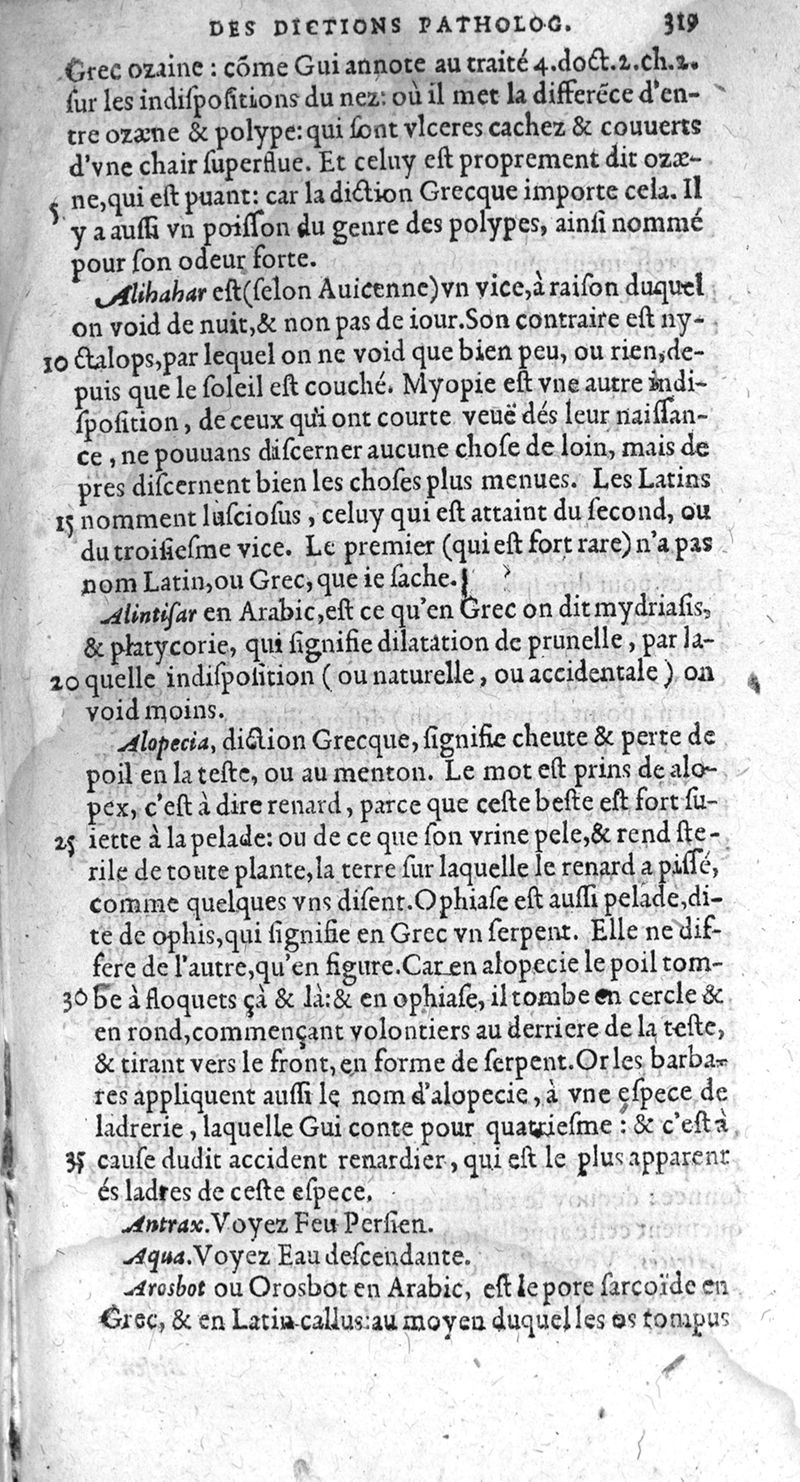 DES DICTIONS PATHOLOG. 319
Grec ozaine : cõme Gui annote au traité 4.doct.2.ch.2.
ſur les indiſpoſitions du nez: où il met la differẽce d'en-
tre ozæne & polype: qui ſont vlceres cachez & couuerts
d'vne chair ſuperflue. Et celuy eſt proprement dit ozæ-
5 ne,qui eſt puant: car la diction Grecque importe cela. Il
y a auſſi vn poiſſon du genre des polypes, ainſi nommé
pour ſon odeur forte.
Alihahar eſt(ſelon Auicenne)vn vice,à raiſon duquel
on void de nuit,& non pas de iour.Son contraire eſt ny-
10 ctalops,par lequel on ne void que bien peu, ou rien,de-
puis que le ſoleil eſt couché. Myopie eſt vne autre indi-
ſpoſition, de ceux qui ont courte veuë dés leur naiſſan-
ce , ne pouuans diſcerner aucune choſe de loin, mais de
pres diſcernent bien les choſes plus menues. Les Latins
15 nomment luſcioſus , celuy qui eſt attaint du ſecond, ou
du troiſieſme vice. Le premier (qui eſt fort rare) n'a pas
nom Latin,ou Grec,que ie ſache.
Alintiſar en Arabic,eſt ce qu'en Grec on dit mydriaſis,
& platycorie, qui ſignifie dilatation de prunelle, par la-
20 quelle indiſpoſition ( ou naturelle, ou accidentale ) on
void moins.
Alopecia, diction Grecque, ſignifie cheute & perte de
poil en la teſte, ou au menton. Le mot eſt prins de alo-
pex, c'eſt à dire renard, parce que ceſte beſte eſt fort ſu-
25 iette à la pelade: ou de ce que ſon vrine pele,& rend ſte-
rile de toute plante,la terre ſur laquelle le renard a piſſé,
comme quelques vns diſent.Ophiaſe eſt auſſi pelade,di-
te de ophis,qui ſignifie en Grec vn ſerpent. Elle ne dif-
fere de l'autre,qu'en figure.Car en alopecie le poil tom-
30 be à floquets çà & là:& en ophiaſe, il tombe en cercle &
en rond,commençant volontiers au derriere de la teſte,
& tirant vers le front,en forme de ſerpent.Or les barba-
res appliquent auſſi le nom d'alopecie, à vne eſpece de
ladrerie , laquelle Gui conte pour quatrieſme : & c'eſt à
35 cauſe dudit accident renardier, qui eſt le plus apparent
és ladres de ceſte eſpece.
Antrax.Voyez Feu Perſien.
Aqua.Voyez Eau deſcendante.
Arosbot ou Orosbot en Arabic, eſt le pore ſarcoïde en
Grec, & en Latin callus:au moyen duquel les os rompus